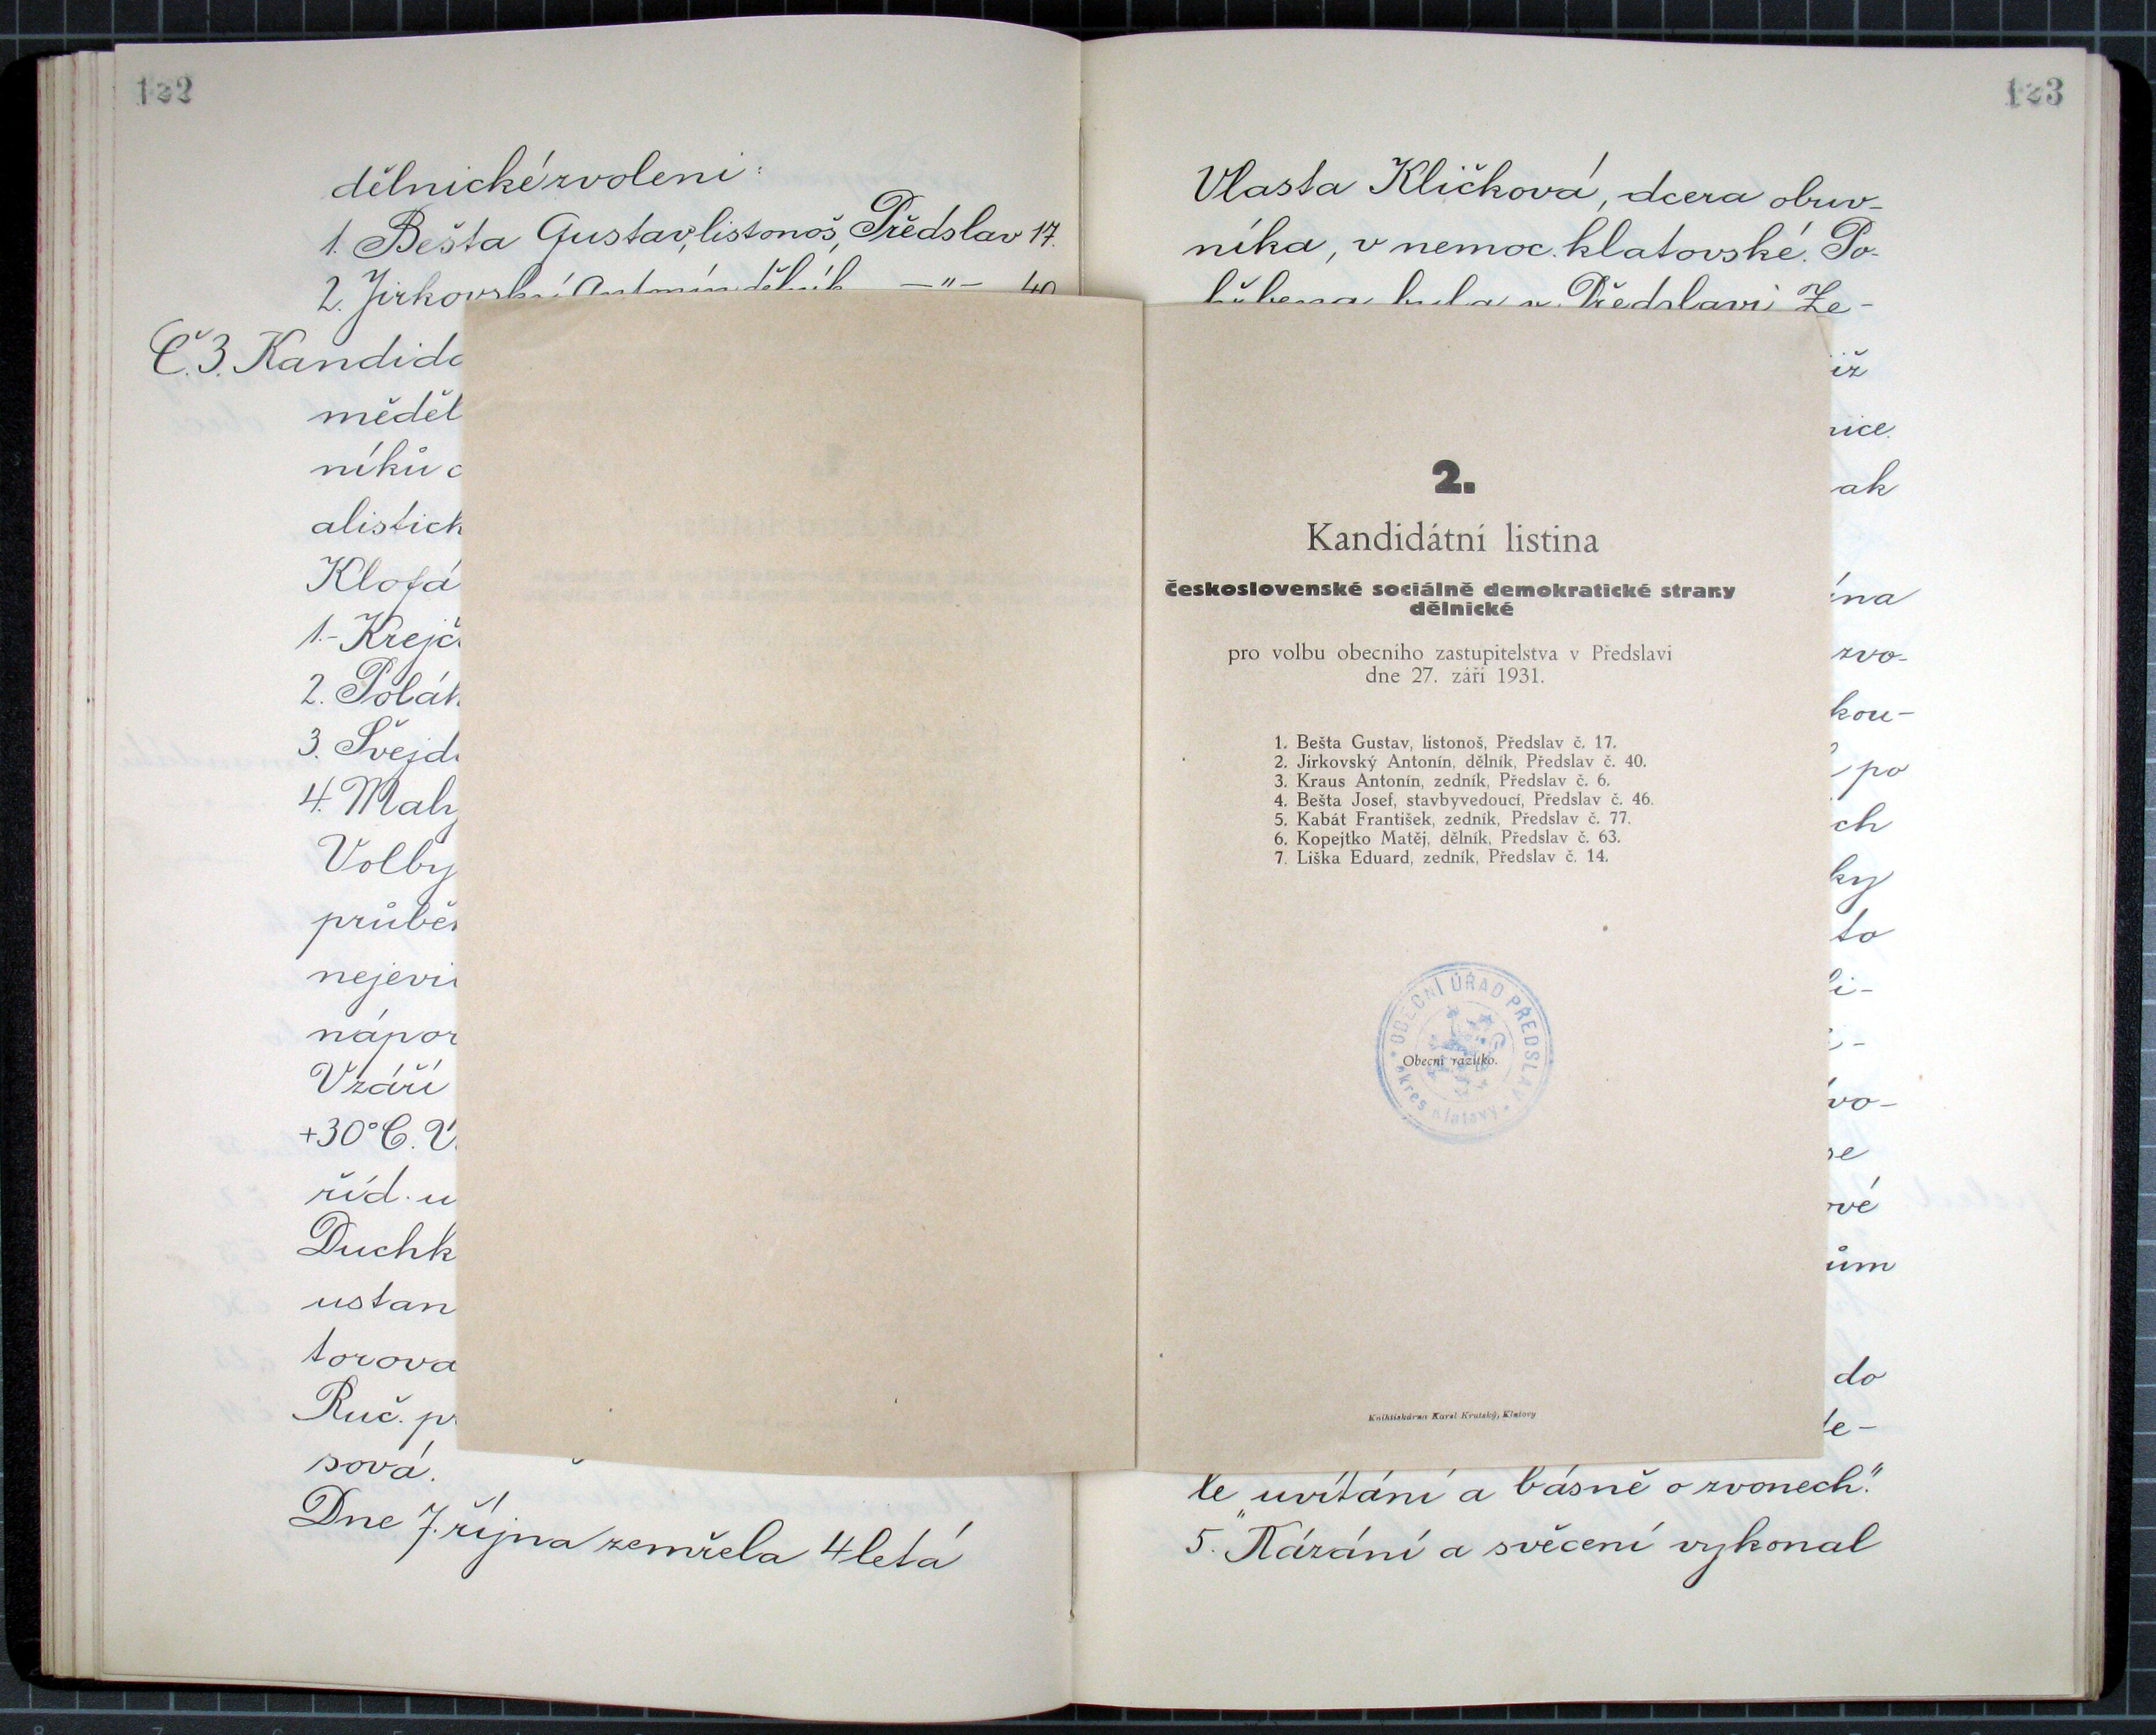 122
dělnické zvoleni:
1. Bešta Gustav, listonoš, Předslav 17.
2. Jirkovský Antonín dělník —"— 40
Č.3. Kandidá
měděl
níků
alistick
Klofá
1.- Krejč
2. Polák
3. Švejd
4. Malý
Volby
průbě
nejevi
nápor
V září
+30°C. V
říd. u
Duchk
ustan
torova
Ruč. p
sová.
Dne 7. října zemřela 4letá
123
Vlasta Kličková, dcera obuv-
níka, v nemoc. klatovské. Po-
hřbena byla v Předslavi Ze-
iž
nice.
ak
ína
zvo-
kou-
po
ch
ky
to
li-
vo-
se
ové
ům
do
le-
le „uvítání a básně o zvonech."
5. „Kázání a svěcení vykonal
2.
Kandidátní listina
československé sociálně demokratické strany
dělnické
pro volbu obecního zastupitelstva v Předslavi
dne 27. září 1931.
1. Bešta Gustav, listonoš, Předslav č. 17.
2. Jirkovský Antonín, dělník, Předslav č. 40.
3. Kraus Antonín, zedník, Předslav č. 6.
4. Bešta Josef, stavbyvedoucí, Předslav č. 46.
5. Kabát František, zedník, Předslav č. 77.
6. Kopejtko Matěj, dělník, Předslav č. 63.
7. Liška Eduard, zedník, Předslav č. 14.
OBECNÍ ÚŘAD PŘEDSLAV
okres Klatovy
Obecní razítko.
Knihtiskárna Karel Krutský, Klatovy